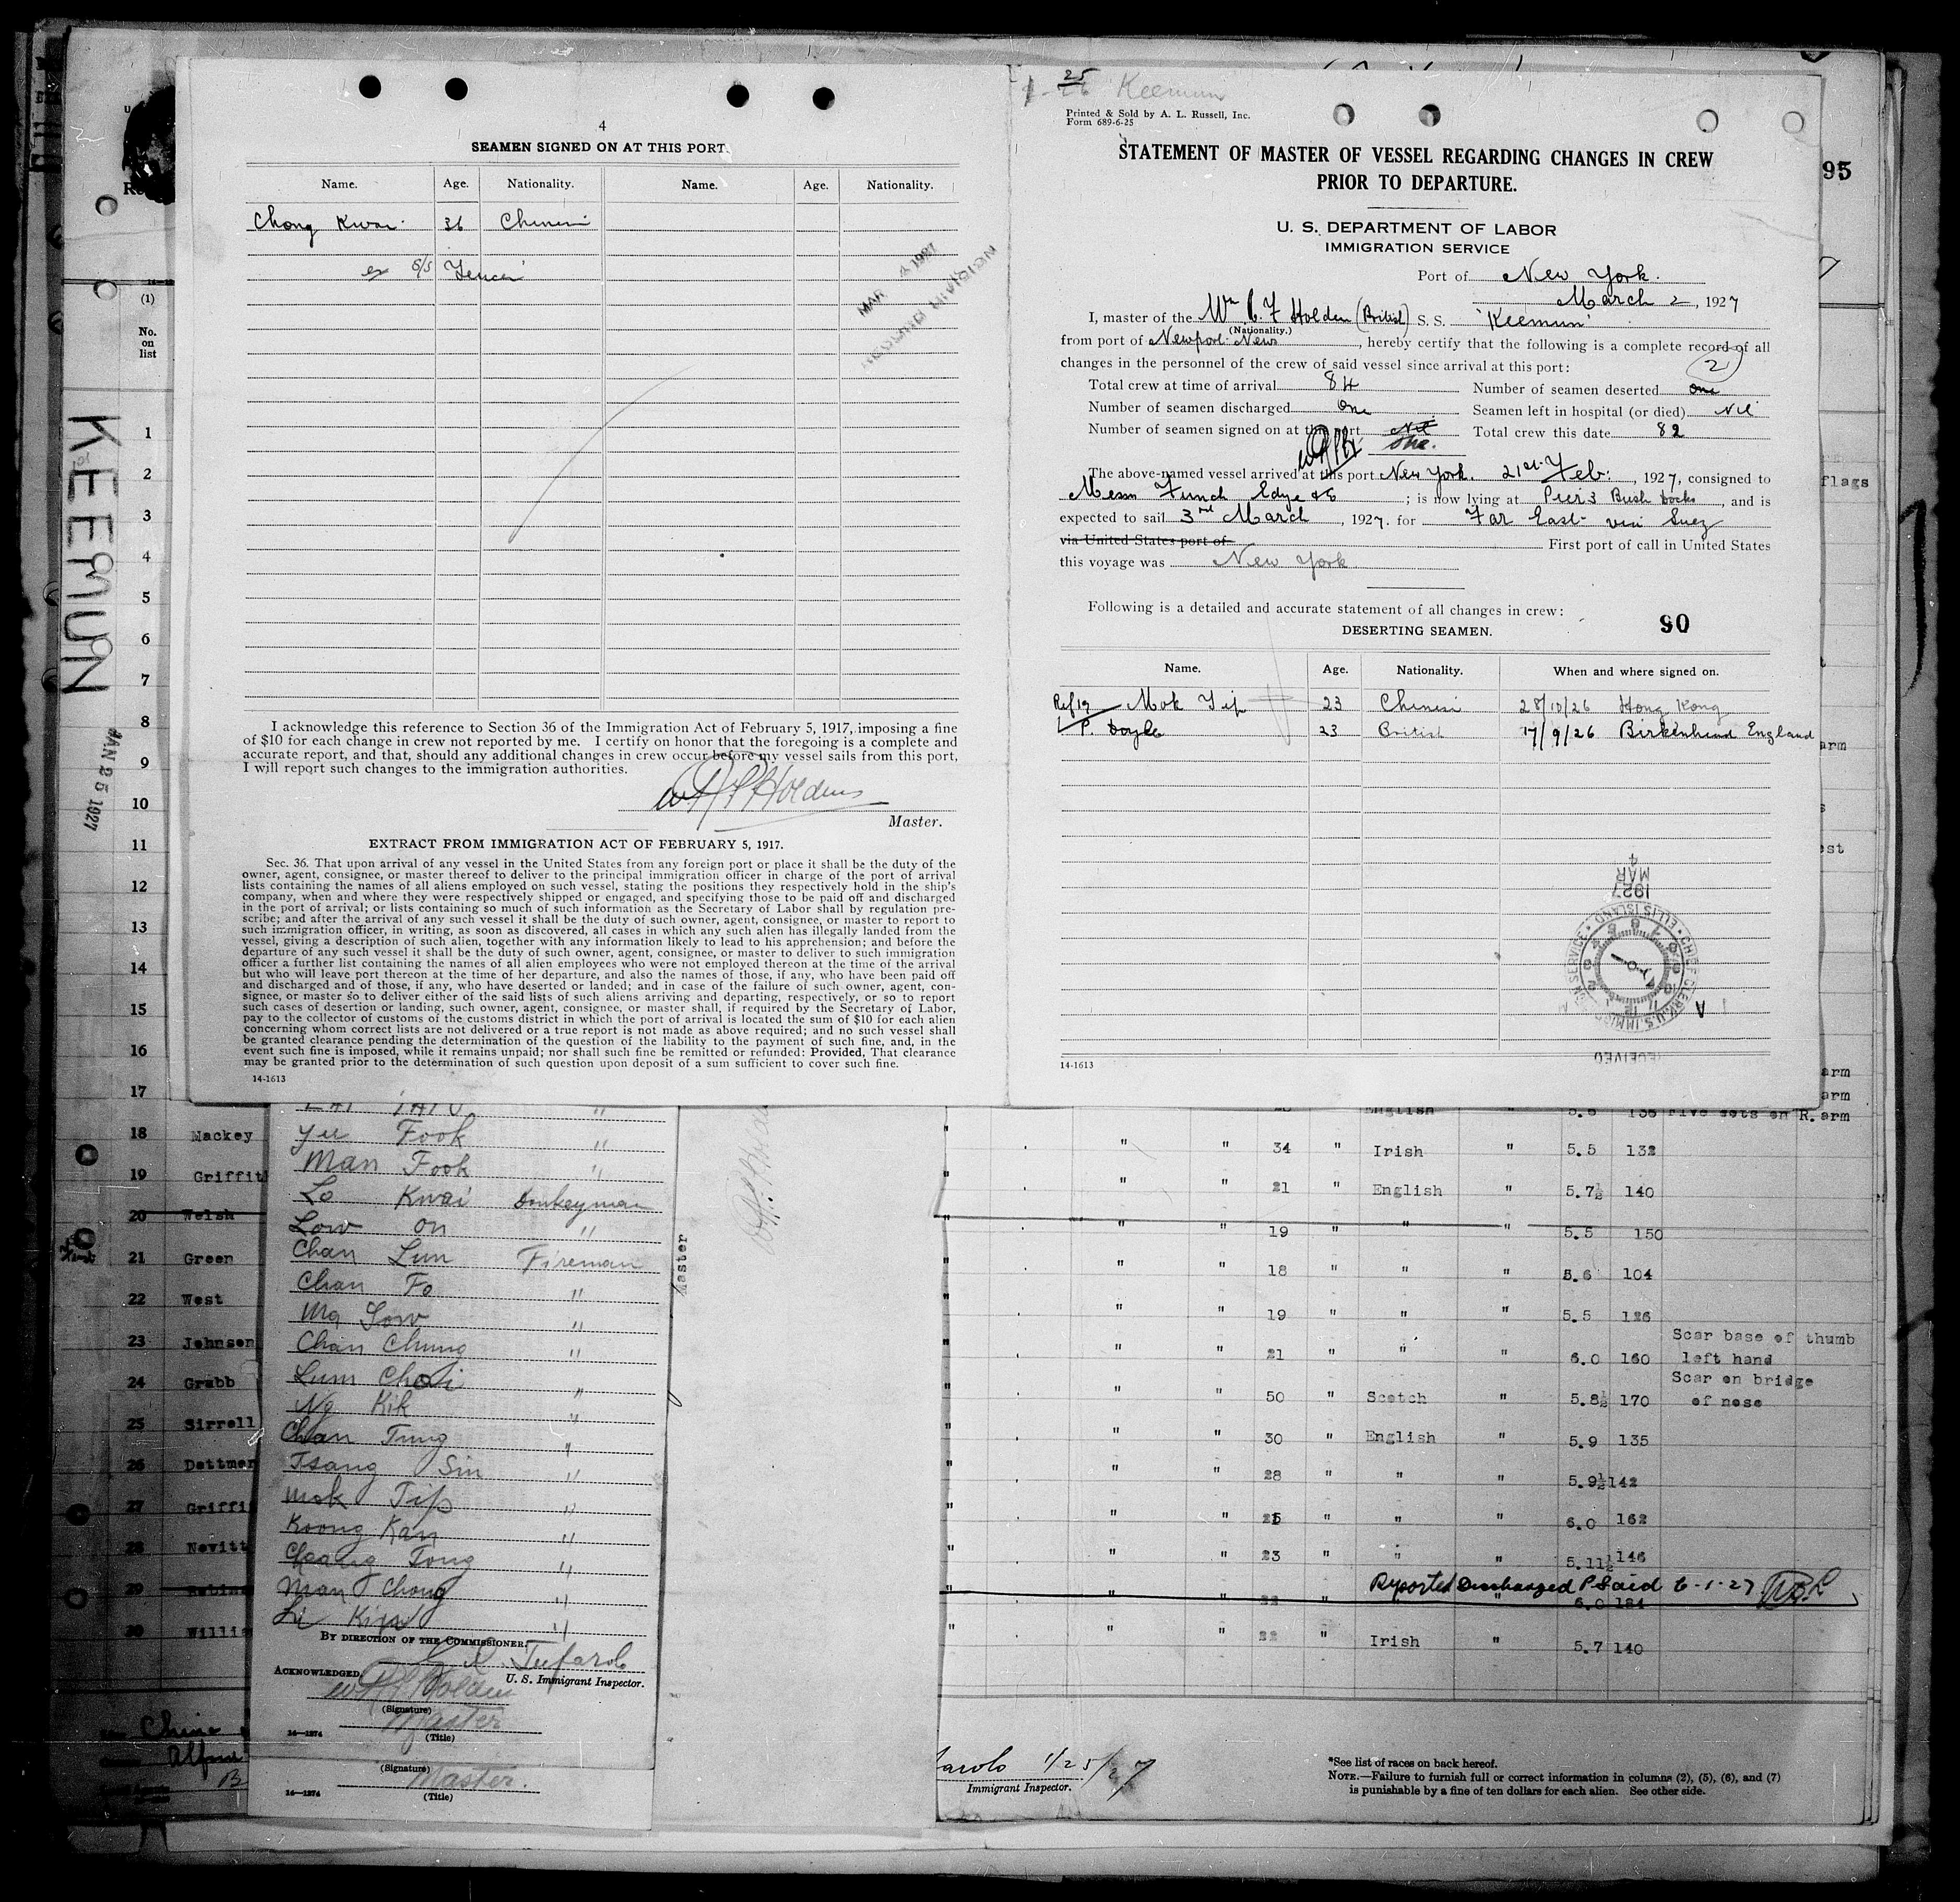 4
SEAMEN SIGNED ON AT THIS PORT.
Name. Age. Nationality. Name. Age. Nationality.
Chong Kwai 36 Chinese
ex S/S
MAR 4 1927
RECORD DIVISION
I acknowledge this reference to Section 36 of the Immigration Act of February 5, 1917, imposing a fine
of $10 for each change in crew not reported by me. I certify on honor that the foregoing is a complete and
accurate report, and that, should any additional changes in crew occur before my vessel sails from this port,
I will report such changes to the immigration authorities.
Holden
Master.
EXTRACT FROM IMMIGRATION ACT OF FEBRUARY 5, 1917.
Sec. 36. That upon arrival of any vessel in the United States from any foreign port or place it shall be the duty of the
owner, agent, consignee, or master thereof to deliver to the principal immigration officer in charge of the port of arrival
lists containing the names of all aliens employed on such vessel, stating the positions they respectively hold in the ship's
company, when and where they were respectively shipped or engaged, and specifying those to be paid off and discharged
in the port of arrival; or lists containing so much of such information as the Secretary of Labor shall by regulation pre-
scribe; and after the arrival of any such vessel it shall be the duty of such owner, agent, consignee, or master to report to
such immigration officer, in writing, as soon as discovered, all cases in which any such alien has illegally landed from the
vessel, giving a description of such alien, together with any information likely to lead to his apprehension; and before the
departure of any such vessel it shall be the duty of such owner, agent, consignee, or master to deliver to such immigration
officer a further list containing the names of all alien employees who were not employed thereon at the time of the arrival
but who will leave port thereon at the time of her departure, and also the names of those, if any, who have been paid off
and discharged and of those, if any, who have deserted or landed; and in case of the failure of such owner, agent, con-
signee, or master so to deliver either of the said lists of such aliens arriving and departing, respectively, or so to report
such cases of desertion or landing, such owner, agent, consignee, or master shall, if required by the Secretary of Labor,
pay to the collector of customs of the customs district in which the port of arrival is located the sum of $10 for each alien
concerning whom correct lists are not delivered or a true report is not made as above required; and no such vessel shall
be granted clearance pending the determination of the question of the liability to the payment of such fine, and, in the
event such fine is imposed, while it remains unpaid; nor shall such fine be remitted or refunded: Provided, That clearance
may be granted prior to the determination of such question upon deposit of a sum sufficient to cover such fine.
14-1613
25
Keemun
Printed & Sold by A. L. Russell, Inc.
Form 689-6-25
STATEMENT OF MASTER OF VESSEL REGARDING CHANGES IN CREW
PRIOR TO DEPARTURE.
U. S. DEPARTMENT OF LABOR
IMMIGRATION SERVICE
Port of New York.
March 2, 1927
I, master of the Wm C. F Holden (British) S. S. 'Keemun'
(Nationality.)
from port of Newport News, hereby certify that the following is a complete record of all
changes in the personnel of the crew of said vessel since arrival at this port:
2
Total crew at time of arrival 84 Number of seamen deserted One
Number of seamen discharged One Seamen left in hospital (or died) Nil
Number of seamen signed on at this port Nil One. Total crew this date 82
The above-named vessel arrived at this port New York. 21st Feb., 1927, consigned to
Messrs Funch Edye & Co; is now lying at Pier 3 Bush Docks, and is
expected to sail 3rd March, 1927. for Far East via Suez
via United States port of First port of call in United States
this voyage was New York
Following is a detailed and accurate statement of all changes in crew:
DESERTING SEAMEN. 90
Name. Age. Nationality. When and where signed on.
Ref 19 Mok Tip 23 Chinese 28/10/26 Hong Kong
P. Doyle 23 British 17/9/26 Birkenhead England
1927 MAR 4
CHIEF CLERK, U.S. IMMIGRATION SERVICE • ELLIS ISLAND
RECEIVED
14-1613
95
flags
arm
est
arm
arm
KEEMUN
JAN 25 1927
(1)
No.
on
list
1
2
3
4
5
6
7
8
9
10
11
12
13
14
15
16
17
18 Mackey
19 Griffith
20 Welsh
21 Green
22 West
23 Johnson
24 Grabb
25 Sirrell
26 Dettmer
27 Griffi
28 Nevitt
29
30 Willia
Yu Fook "
Man Fook "
Lo Kwai Donkeyman
Low On "
Chan Lun Fireman
Chan Fo "
Ng Sow "
Chan Chung "
Lum Choi "
Ng Kik "
Chan Tung "
Tsang Sin "
Mok Tip "
Koong Kan "
Cheang Tong "
Man Chong "
Li Kiow "
BY DIRECTION OF THE COMMISSIONER:
U. S. Immigrant Inspector.
ACKNOWLEDGED,
Holden
(Signature)
Master
(Title)
14-1274
(Signature)
Master.
(Title)
14-1274
Master
English " 5.6 136 Five dots on R. arm
" " " 34 " Irish " 5.5 132
" " " 21 " English " 5.7½ 140
" " " 19 " " " 5.5 150
" " " 18 " " " 5.6 104
" " " 19 " " " 5.5 126
" " " 21 " " " 6.0 160 Scar base of thumb
left hand
" " " 50 " Scotch " 5.8½ 170 Scar on bridge
of nose
" " " 30 " English " 5.9 135
" " " 28 " " " 5.9½ 142
" " " 25 " " " 6.0 162
" " " 23 " " " 5.11½ 146
Reported Discharged P Said 6-1-27
" " " 22 " 6.0 184
" " " 22 " Irish " 5.7 140
China
Alfred
1/25/27
Immigrant Inspector.
*See list of races on back hereof.
NOTE.—Failure to furnish full or correct information in columns (2), (5), (6), and (7)
is punishable by a fine of ten dollars for each alien. See other side.